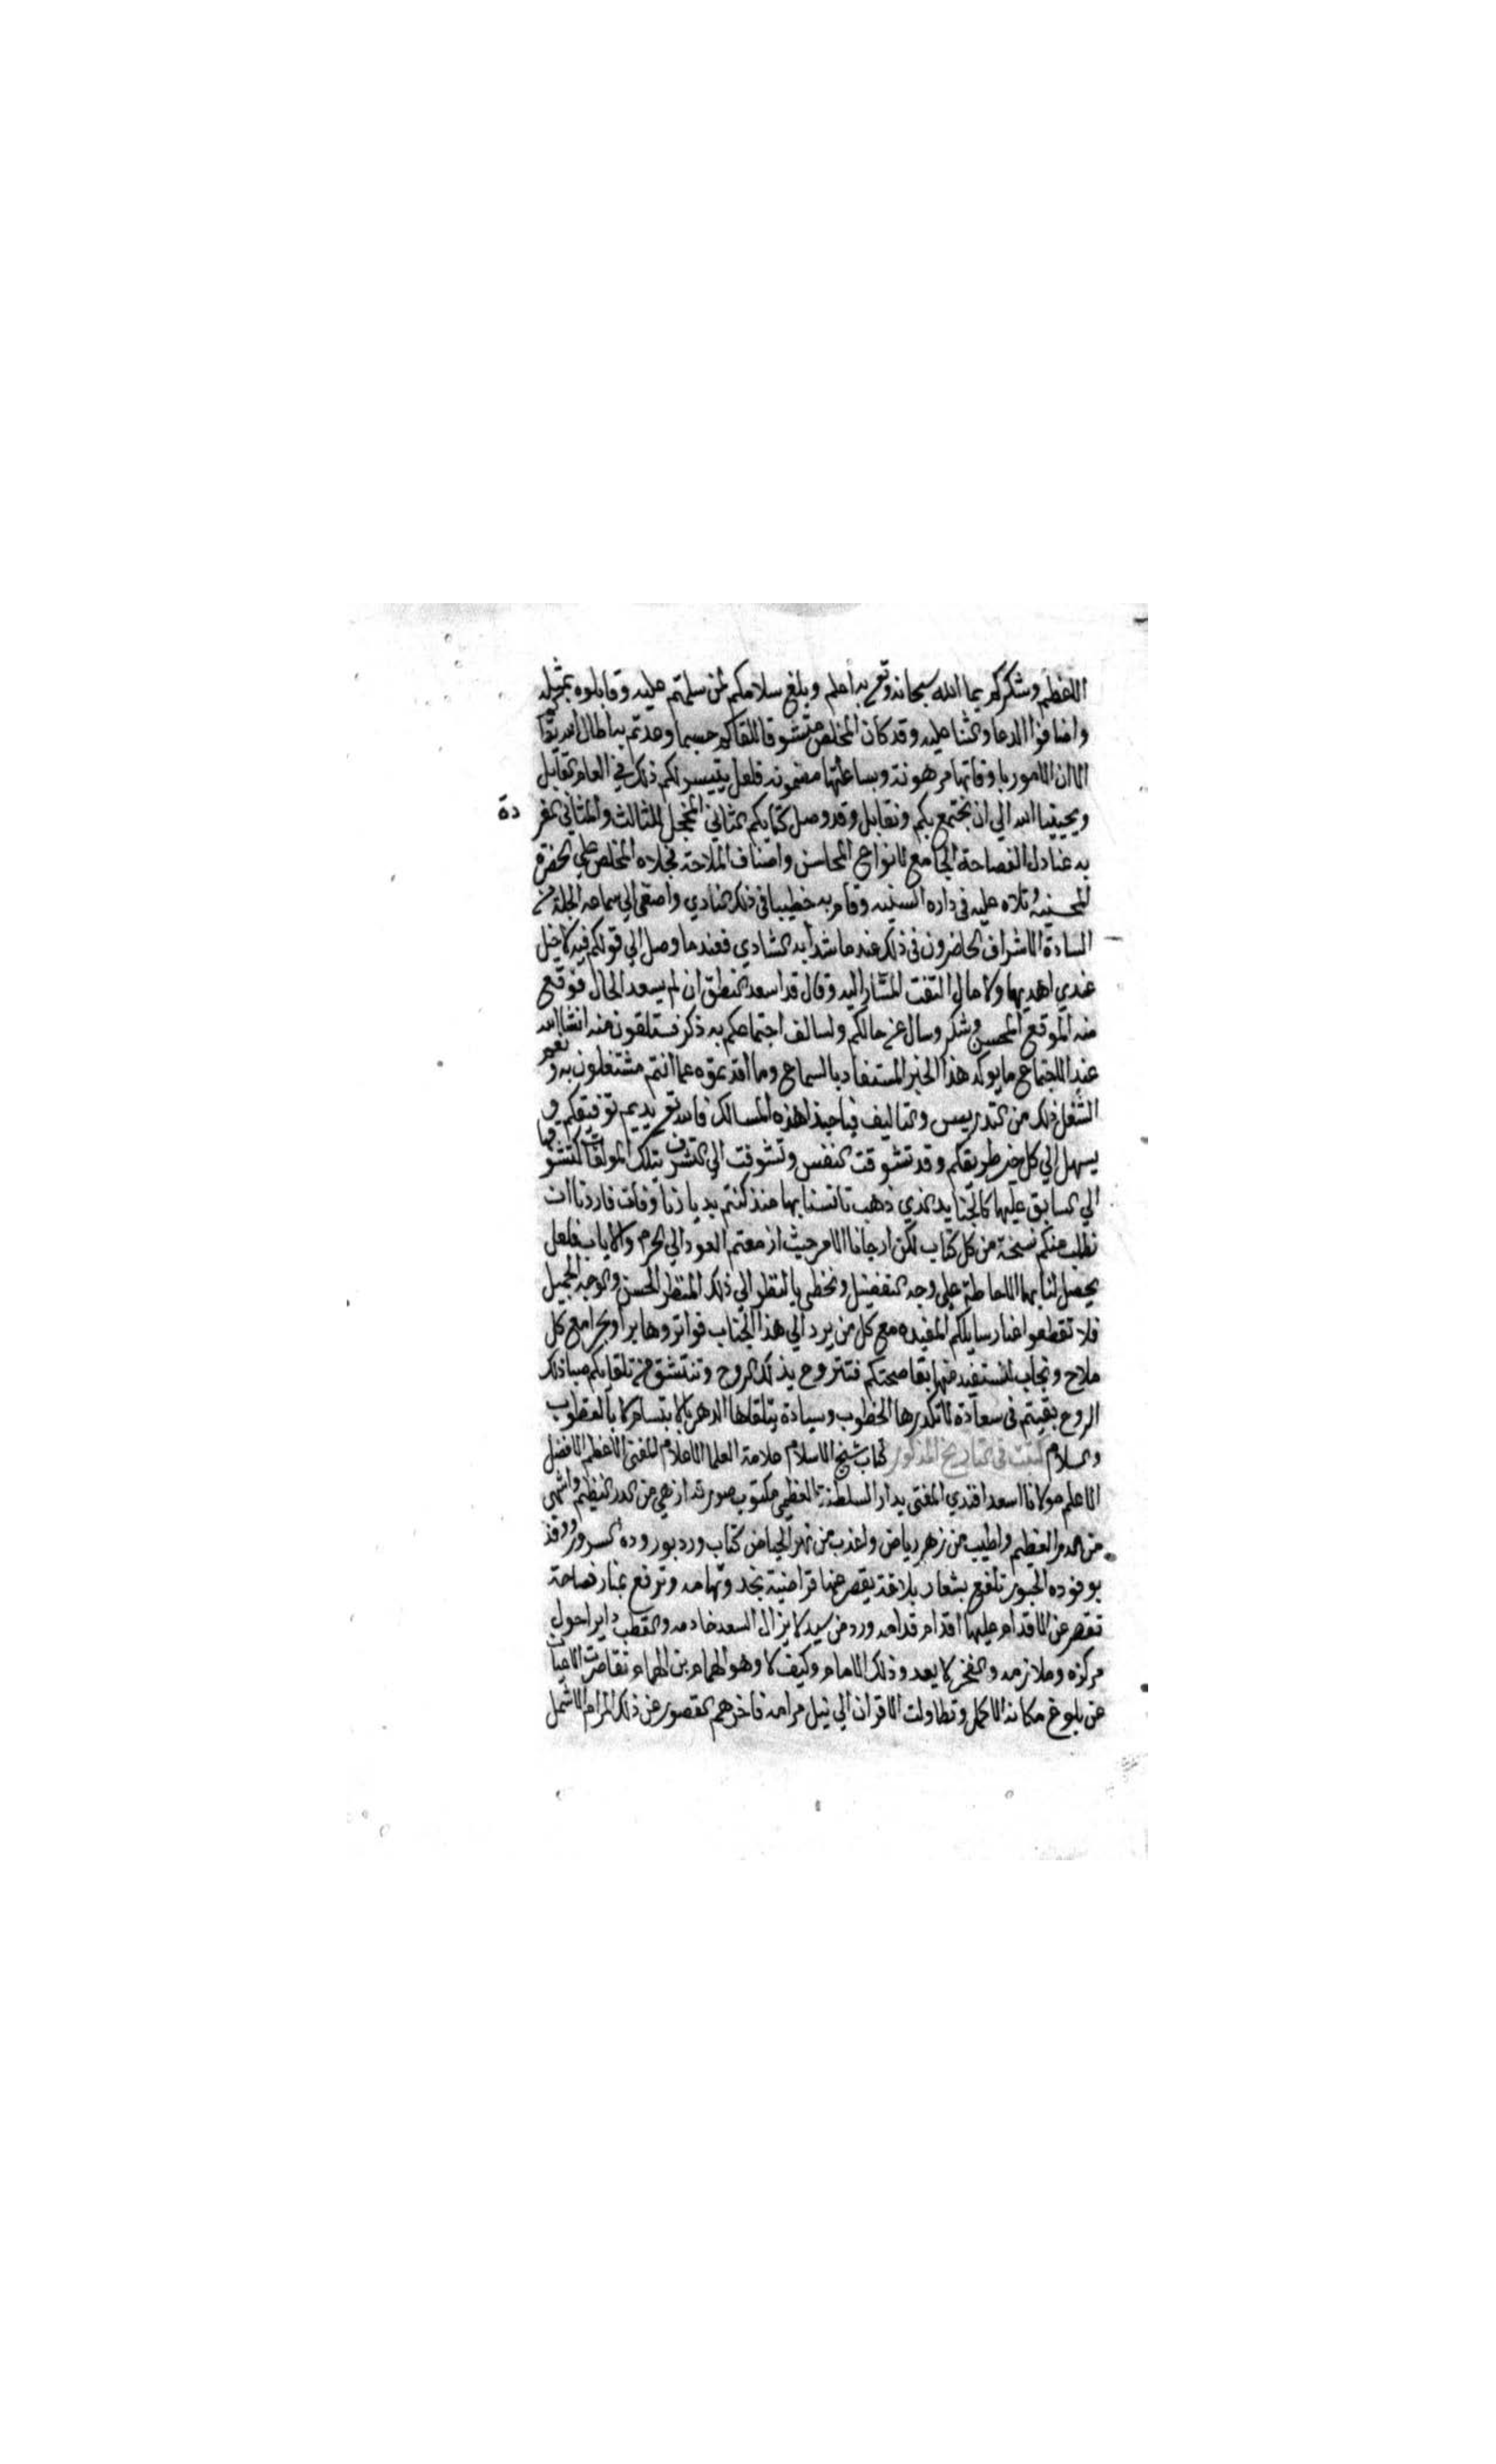 الاعظم وشكركم بما الله سبحانه وتع به اعلم وبلغ سلامكم لمن سلمتم عليه وقابلوه بمثله
واضافوا الدعا والثنا عليه وقد كان المخلص متشوقا للقاكم حسبما وعدتم به اطال الله بقاكم
الا ان الامور باوقاتها مرهونة وبساعاتها مضمونه فلعل يتيسر لكم ذلك في العام القابل
ويحيينا الله الي ان نجتمع بكم ونقابل وقد وصل كتابكم الثاني المخجل للمثالث والمثاني المغر
دة
به عنادل الفصاحة الجامع لانواع المحاسن واصناف الملاحة فجلاه المخلص علي الحضرة
المحسنيه وتلاه عليه في داره السنيه وقام به خطيبا في ذلك النادي واصغي الي سماعه الجلة من
السادة الاشراف الحاضرون في ذلك عند ما شدا به الشادي فعندما وصل الي قولكم فيه لاخيل
عندي اهديها ولا مال التفت المشار اليه وقال قد اسعد النطق ان لم يسعد الحال فوقع
منه الموقع المحسن وشكر وسال عن حالكم ولسالف اجتماعكم به ذكر فستلقون منه انشا الله
عند الاجتماع ما يوكد هذا الخبر المستفاد بالسماع وما افدتموه عما انتم مشتغلون به ونعم
الشغل ذلك من التدريس والتاليف فيا حبذا هذه المسالك فالله تع يديم توفيقكم و
يسهل الي كل خير طريقكم وقد تشوقت النفس وتشوفت الي التشرف بتلك المولفات كتشوقها
الي السابق عليها كالجنا يد الذي ذهب تانسنا بها منذ كنتم بديارنا وفات فاردنا ان
نطلب منكم نسخة من كل كتاب لكن ارجانا الامر حيث ازمعتم العود الي الحرم والاياب فلعل
يحصل لنا بها الاحاطة علي وجه التفضيل ونحظي بالنظر الي ذلك المنظر الحسن والوجه الجميل
فلا تقطعوا اخبار رسايلكم المفيده مع كل من يرد الي هذا الجناب فواتروها برا وبحرا مع كل
ملاح ونجاب لنستفيد منها بقا صحتكم فنتروح بذلك الروح ونتنشق من تلقايكم صبا ذلك
الروح بقيتم في سعادة لا تكدرها الخطوب وسيادة يتلقاها الدهر بالابتسام لا بالقطوب
والسلام كتبت في التاريخ المذكور كتاب شيخ الاسلام علامة العلما الاعلام المفتي الاعظم الافضل
الاعلم مولانا اسعد افندي المفتي بدار السلطنة العظمي مكتوب صورته ازهي من الدر النظيم واشهي
من العظيم واطيب من زهر رياض واعذب من نهر الحياض كتاب ورد بوروده السرور ووفد
بوفوده الحبور تلفع بشعار بلاغة يقصر عنها قراضية نجد وتهامه وترفع بمنار فصاحة
تقصر عن الاقدام عليها اقدام قدامه ورد من سيد لا يزال السعد خادمه والقطب دايرا حول
مركزه وملازمه والفخر لا يعد وذلك الامام وكيف لا وهو الهمام بن الهمام تقاصرت الاعيان
عن بلوغ مكانه الاكمل وتطاولت الاقران الي نيل مرامه فاخرهم القصور عن ذلك المرام الاشمل